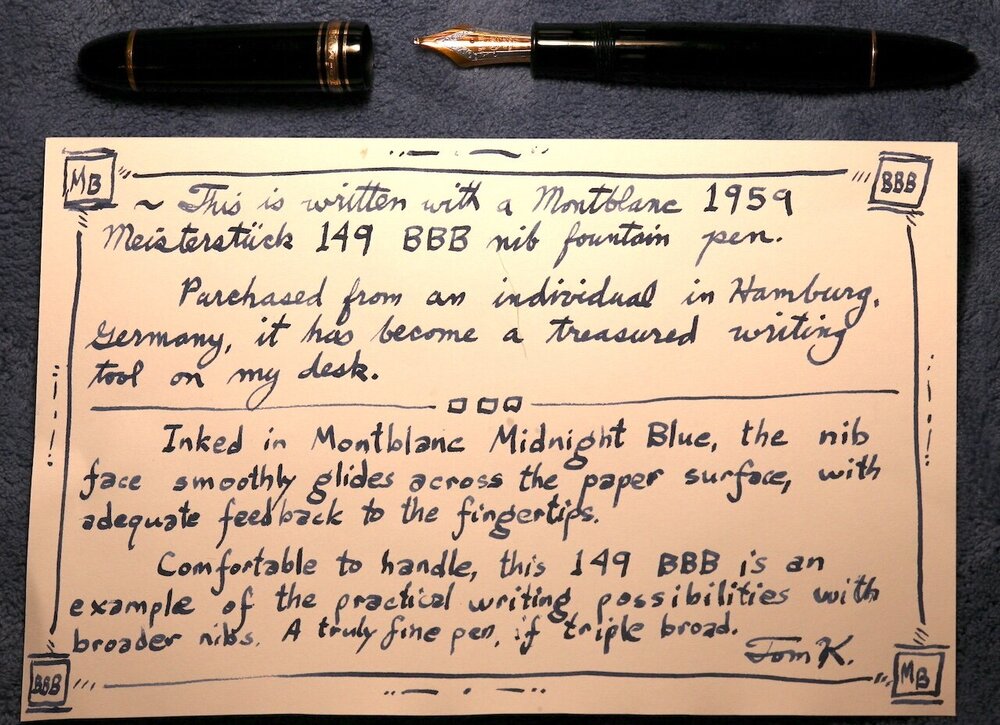 MB
BBB
~ This is written with a Montblanc 1959
Meisterstück 149 BBB nib fountain pen.
Purchased from an individual in Hamburg,
Germany, it has become a treasured writing
tool on my desk.
Inked in Montblanc Midnight Blue, the nib
face smoothly glides across the paper surface, with
adequate feedback to the fingertips.
Comfortable to handle, this 149 BBB is an
example of the practical writing possibilities with
broader nibs. A truly fine pen, if triple broad.
Tom K.
BBB
MB